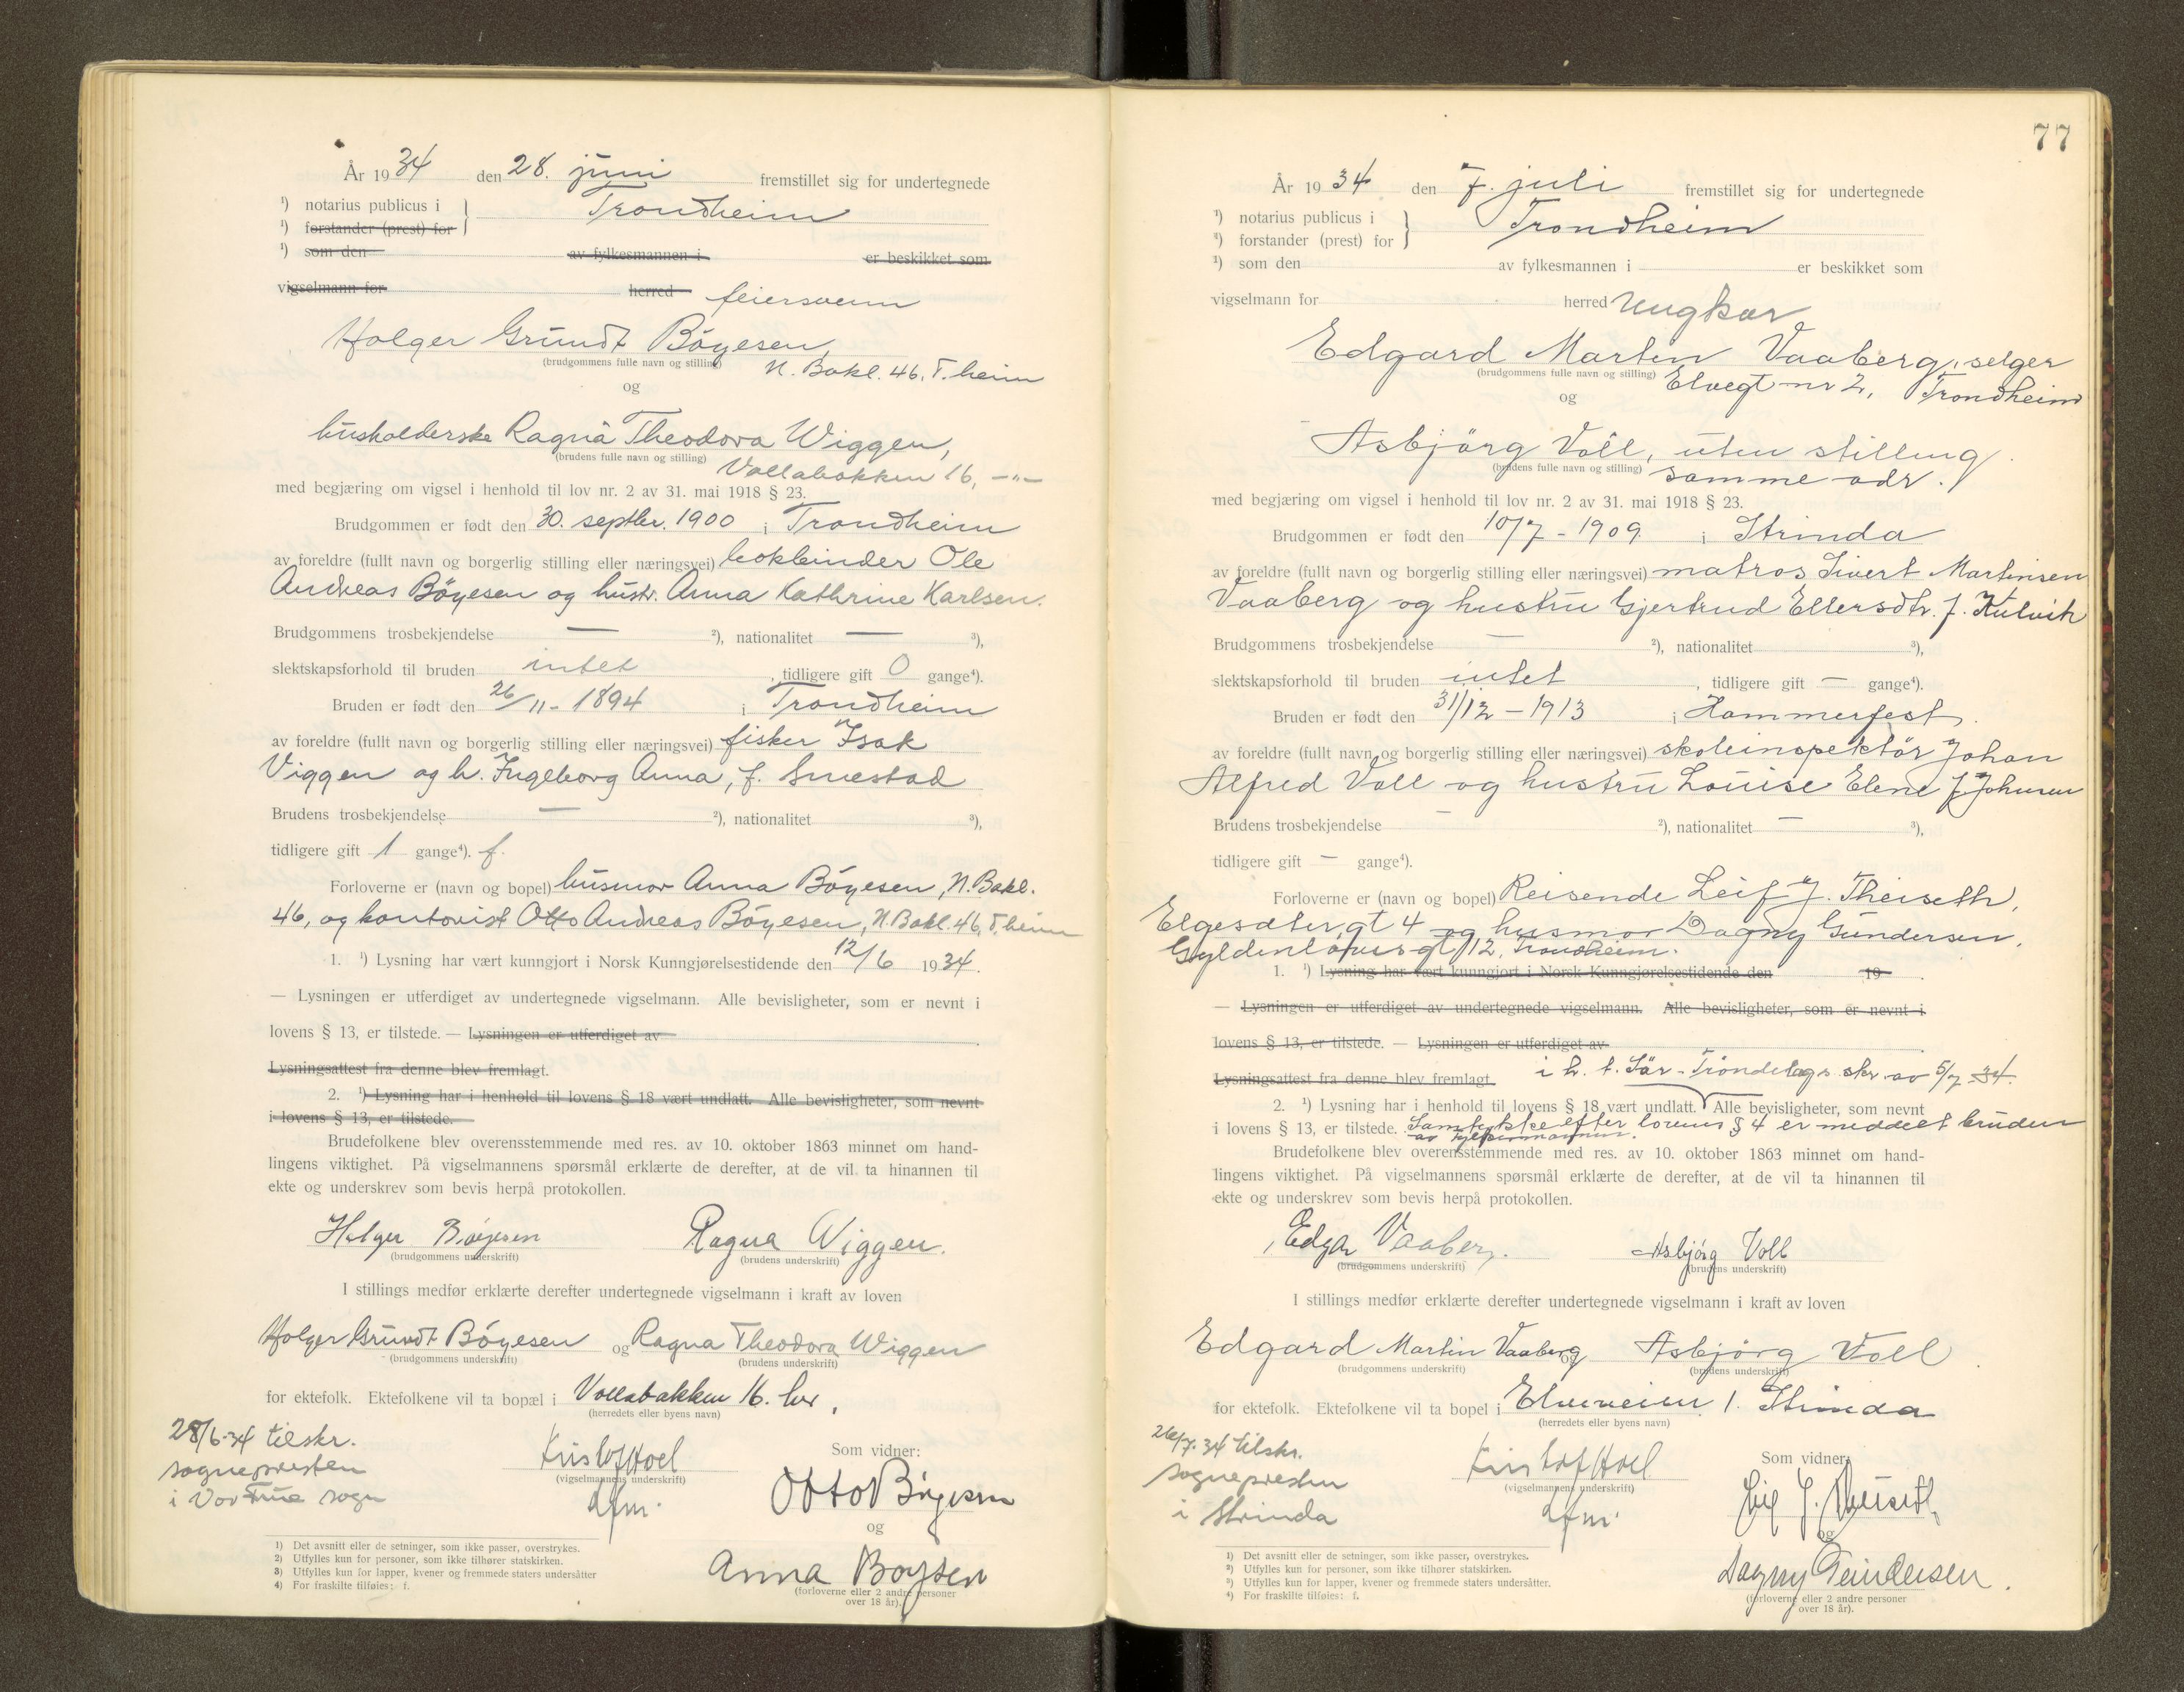 År 1934 den 28. juni fremstillet sig for undertegnede
¹) notarius publicus i
¹) forstander (prest) for
Trondheim
¹) som den av fylkesmannen i er beskikket som
vigselmann for herred feiersvenn
Holger Grundt Böyesen,
(brudgommens fulle navn og stilling) N. Bakl. 46, T.heim
og
husholderske Ragna Theodora Wiggen,
(brudens fulle navn og stilling) Vollabakken 16, -"-
med begjæring om vigsel i henhold til lov nr. 2 av 31. mai 1918 § 23.
Brudgommen er født den 30. septbr. 1900 i Trondheim
av foreldre (fullt navn og borgerlig stilling eller næringsvei) bokbinder Ole
Andreas Böyesen og hustr. Anna Kathrine Karlsen.
Brudgommens trosbekjendelse — ²), nationalitet — ³),
slektskapsforhold til bruden intet, tidligere gift 0 gange⁴).
Bruden er født den 26/11 - 1894 i Trondheim
av foreldre (fullt navn og borgerlig stilling eller næringsvei) fisker Isak
Viggen og h. Ingeborg Anna, f. Smestad
Brudens trosbekjendelse — ²), nationalitet ³),
tidligere gift 1 gange⁴). f.
Forloverne er (navn og bopel) husmor Anna Böyesen, N. Bakl.
46, og kontorist Otto Andreas Böyesen, N. Bakl. 46, T.heim
1. ¹) Lysning har vært kunngjort i Norsk Kunngjørelsestidende den 12/6 1934.
— Lysningen er utferdiget av undertegnede vigselmann. Alle bevisligheter, som er nevnt i
lovens § 13, er tilstede. — Lysningen er utferdiget av
Lysningsattest fra denne blev fremlagt.
2. ¹) Lysning har i henhold til lovens § 18 vært undlatt. Alle bevisligheter, som nevnt
i lovens § 13, er tilstede.
Brudefolkene blev overensstemmende med res. av 10. oktober 1863 minnet om hand-
lingens viktighet. På vigselmannens spørsmål erklærte de derefter, at de vil ta hinannen til
ekte og underskrev som bevis herpå protokollen.
Holger Böyesen Ragna Wiggen.
(brudgommens underskrift) (brudens underskrift)
I stillings medfør erklærte derefter undertegnede vigselmann i kraft av loven
Holger Grundt Böyesen og Ragna Theodora Wiggen
(brudgommens underskrift) (brudens underskrift)
for ektefolk. Ektefolkene vil ta bopæl i Vollabakken 16. her,
(herredets eller byens navn)
28/6-34 tilskr.
sognepresten
i Vor Frue sogn
Kristof Hoel
(vigselmannens underskrift)
dfm.
Som vidner:
Otto Böyesen
og
Anna Boysen
(forloverne eller 2 andre personer
over 18 år).
1) Det avsnitt eller de setninger, som ikke passer, overstrykes.
2) Utfylles kun for personer, som ikke tilhører statskirken.
3) Utfylles kun for lapper, kvener og fremmede staters undersåtter
4) For fraskilte tilføies: f.
77
År 1934 den 7. juli fremstillet sig for undertegnede
¹) notarius publicus i
¹) forstander (prest) for
Trondheim
¹) som den av fylkesmannen i er beskikket som
vigselmann for herred Ungkar
Edgard Martin Vaaberg, selger
(brudgommens fulle navn og stilling) Elvegt nr 2, Trondheim
og
Asbjörg Voll, uten stilling
(brudens fulle navn og stilling) samme adr.
med begjæring om vigsel i henhold til lov nr. 2 av 31. mai 1918 § 23.
Brudgommen er født den 10/7 - 1909 i Strinda
av foreldre (fullt navn og borgerlig stilling eller næringsvei) matros Sivert Martinsen
Vaaberg og hustru Gjertrud Ellersdtr. f. Kulvik
Brudgommens trosbekjendelse — ²), nationalitet ³),
slektskapsforhold til bruden intet, tidligere gift — gange⁴).
Bruden er født den 31/12 - 1913 i Hammerfest.
av foreldre (fullt navn og borgerlig stilling eller næringsvei) skoleinspektör Johan
Alfred Voll og hustru Louise Elene f. Johnsen
Brudens trosbekjendelse — ²), nationalitet — ³),
tidligere gift — gange⁴).
Forloverne er (navn og bopel) Reisende Leif J. Theiseth,
Elgesætergt 4 og husmor Dagny Gundersen,
Gyldenløvesgt 12, Trondheim.
1. ¹) Lysning har vært kunngjort i Norsk Kunngjørelsestidende den 19
— Lysningen er utferdiget av undertegnede vigselmann. Alle bevisligheter, som er nevnt i
lovens § 13, er tilstede. — Lysningen er utferdiget av
Lysningsattest fra denne blev fremlagt. i h. t. Sör-Tröndelags skr. av 5/7 34.
2. ¹) Lysning har i henhold til lovens § 18 vært undlatt. Alle bevisligheter, som nevnt
i lovens § 13, er tilstede. Samtykke efter lovens § 4 er meddelt bruden
av fylkesmannen.
Brudefolkene blev overensstemmende med res. av 10. oktober 1863 minnet om hand-
lingens viktighet. På vigselmannens spørsmål erklærte de derefter, at de vil ta hinannen til
ekte og underskrev som bevis herpå protokollen.
Edgar Vaaberg. Asbjörg Voll
(brudgommens underskrift) (brudens underskrift)
I stillings medfør erklærte derefter undertegnede vigselmann i kraft av loven
Edgard Martin Vaaberg og Asbjörg Voll
(brudgommens underskrift) (brudens underskrift)
for ektefolk. Ektefolkene vil ta bopel i Elveveien 1. Strinda
(herredets eller byens navn)
26/7-34 tilskr.
sognepresten
i Strinda
Kristof Hoel
(vigselmannens underskrift)
dfm.
Som vidner:
Leif J. Theiseth,
og
Dagny Gundersen.
(forloverne eller 2 andre personer
over 18 år).
1) Det avsnitt eller de setninger, som ikke passer, overstrykes.
2) Utfylles kun for personer, som ikke tilhører statskirken.
3) Utfylles kun for lapper, kvener og fremmede staters undersåtter.
4) For fraskilte tilføies: f.